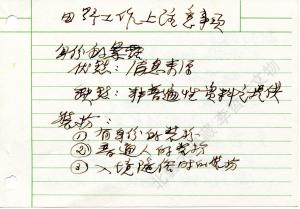 田野工作上注意事项
身份的暴露
优点：信息来源
缺点：非普通性资料之提供
装扮：
① 有身份的装扮
② 普通人的装扮
③ 入境随俗的装扮